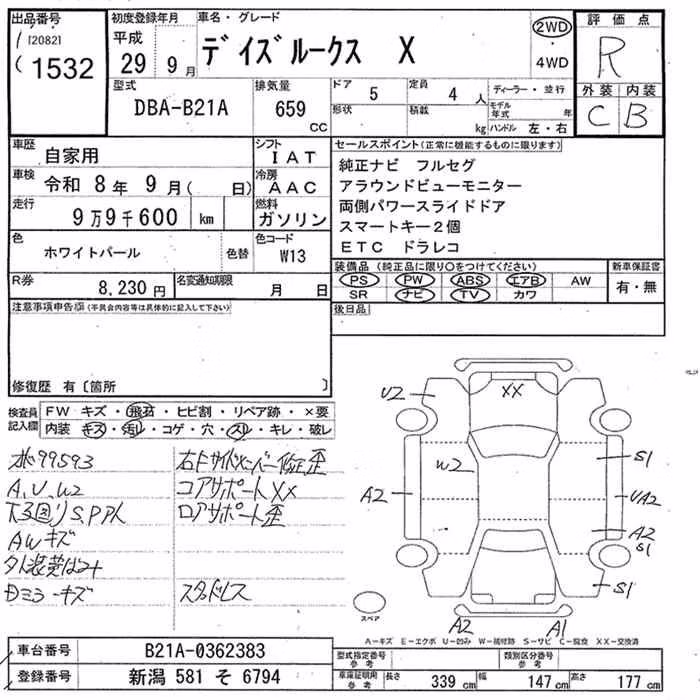 出品番号
[2082]
1532
初度登録年月
平成
29 9月
車名・グレード
デイズルークス X
2WD
・
4WD
評価点
R
外装 内装
C B
型式
DBA-B21A
排気量
659
CC
ドア 5
定員 4 人
形状
積載 kg
ディーラー・並行
モデル年式 年
ハンドル 左・右
車歴 自家用
シフト IAT
車検 令和 8年 9月( 日)
冷房 AAC
走行 9万9千600 km
燃料 ガソリン
色 ホワイトパール 色替
色コード W13
R券 8,230円
名変通知期限 月 日
セールスポイント(正常に機能するものに限ります)
純正ナビ フルセグ
アラウンドビューモニター
両側パワースライドドア
スマートキー2個
ETC ドラレコ
装備品(純正品に限り○をつけてください)
PS PW ABS エアB AW
SR ナビ TV カワ
新車保証書
有・無
後日品
注意事項申告欄(不具合内容等は具体的に記入して下さい)
修復歴 有〔箇所 〕
検査員記入欄
FW キズ・飛石・ヒビ割・リペア跡・×要
内装 キズ・汚レ・コゲ・穴・スリ・キレ・破レ
99593
A、U、W2
下回りS、P
AWキズ
Dミラーキズ
右Fサイドメンバー修正歪
コアサポートXX
ロアサポート歪
スタッドレス
U2
XX
W2
S1
A2
UA2
A2
S1
S1
A2
A1
スペア
A-キズ E-エクボ U-凹み W-補修跡 S-サビ C-腐食 XX-交換済
車台番号 B21A-0362383
登録番号 新潟 581 そ 6794
型式指定番号 参考
類別区分番号 参考
車庫証明用 参考
長さ 339 cm
幅 147 cm
高さ 177 cm